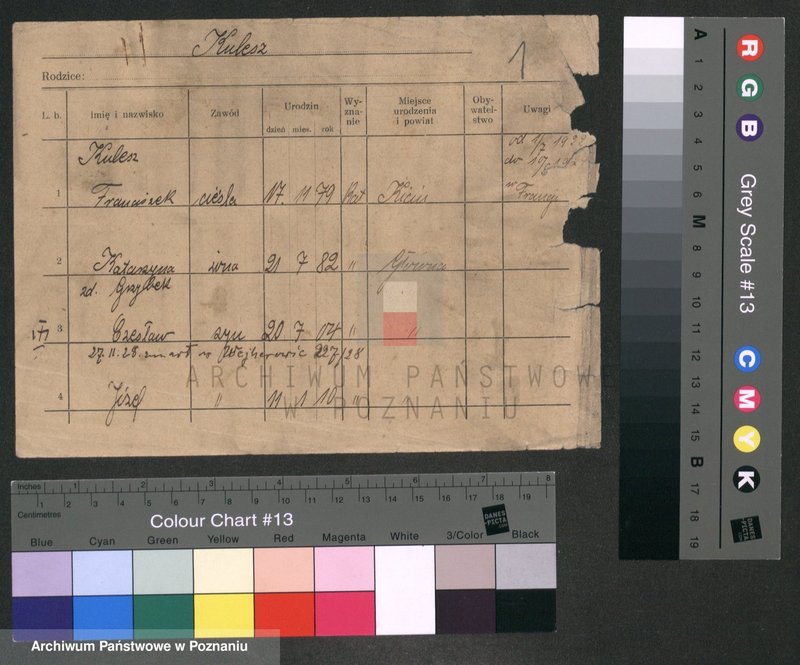 Kulesz
1
Rodzice:
L. b. Imię i nazwisko Zawód Urodzin dzień mies. rok Wyznanie Miejsce urodzenia i powiat Obywatelstwo Uwagi
Kulesz
1 Franciszek cieśla 17. 11 79 kat Kicin w Francji
2 Katarzyna żona 21 7 82 " Główna
zd. Grzybek
3 Czesław syn 20 7 14 " "
27.11.28. zmarł w Wejherowie 227/28
4 Józef " 11 1 10 " "
ARCHIWUM PAŃSTWOWE
W POZNANIU
A 1 2 3 4 5 6 M 8 9 10 11 12 13 14 15 B 17 18 19
R G B
Grey Scale #13
C M Y K
DANES
-PICTA
.COM
Inches 1 2 3 4 5 6 7 8
Centimetres 1 2 3 4 5 6 7 8 9 10 11 12 13 14 15 16 17 18 19
Colour Chart #13
DANES
-PICTA
.COM
Blue Cyan Green Yellow Red Magenta White 3/Color Black
Archiwum Państwowe w Poznaniu